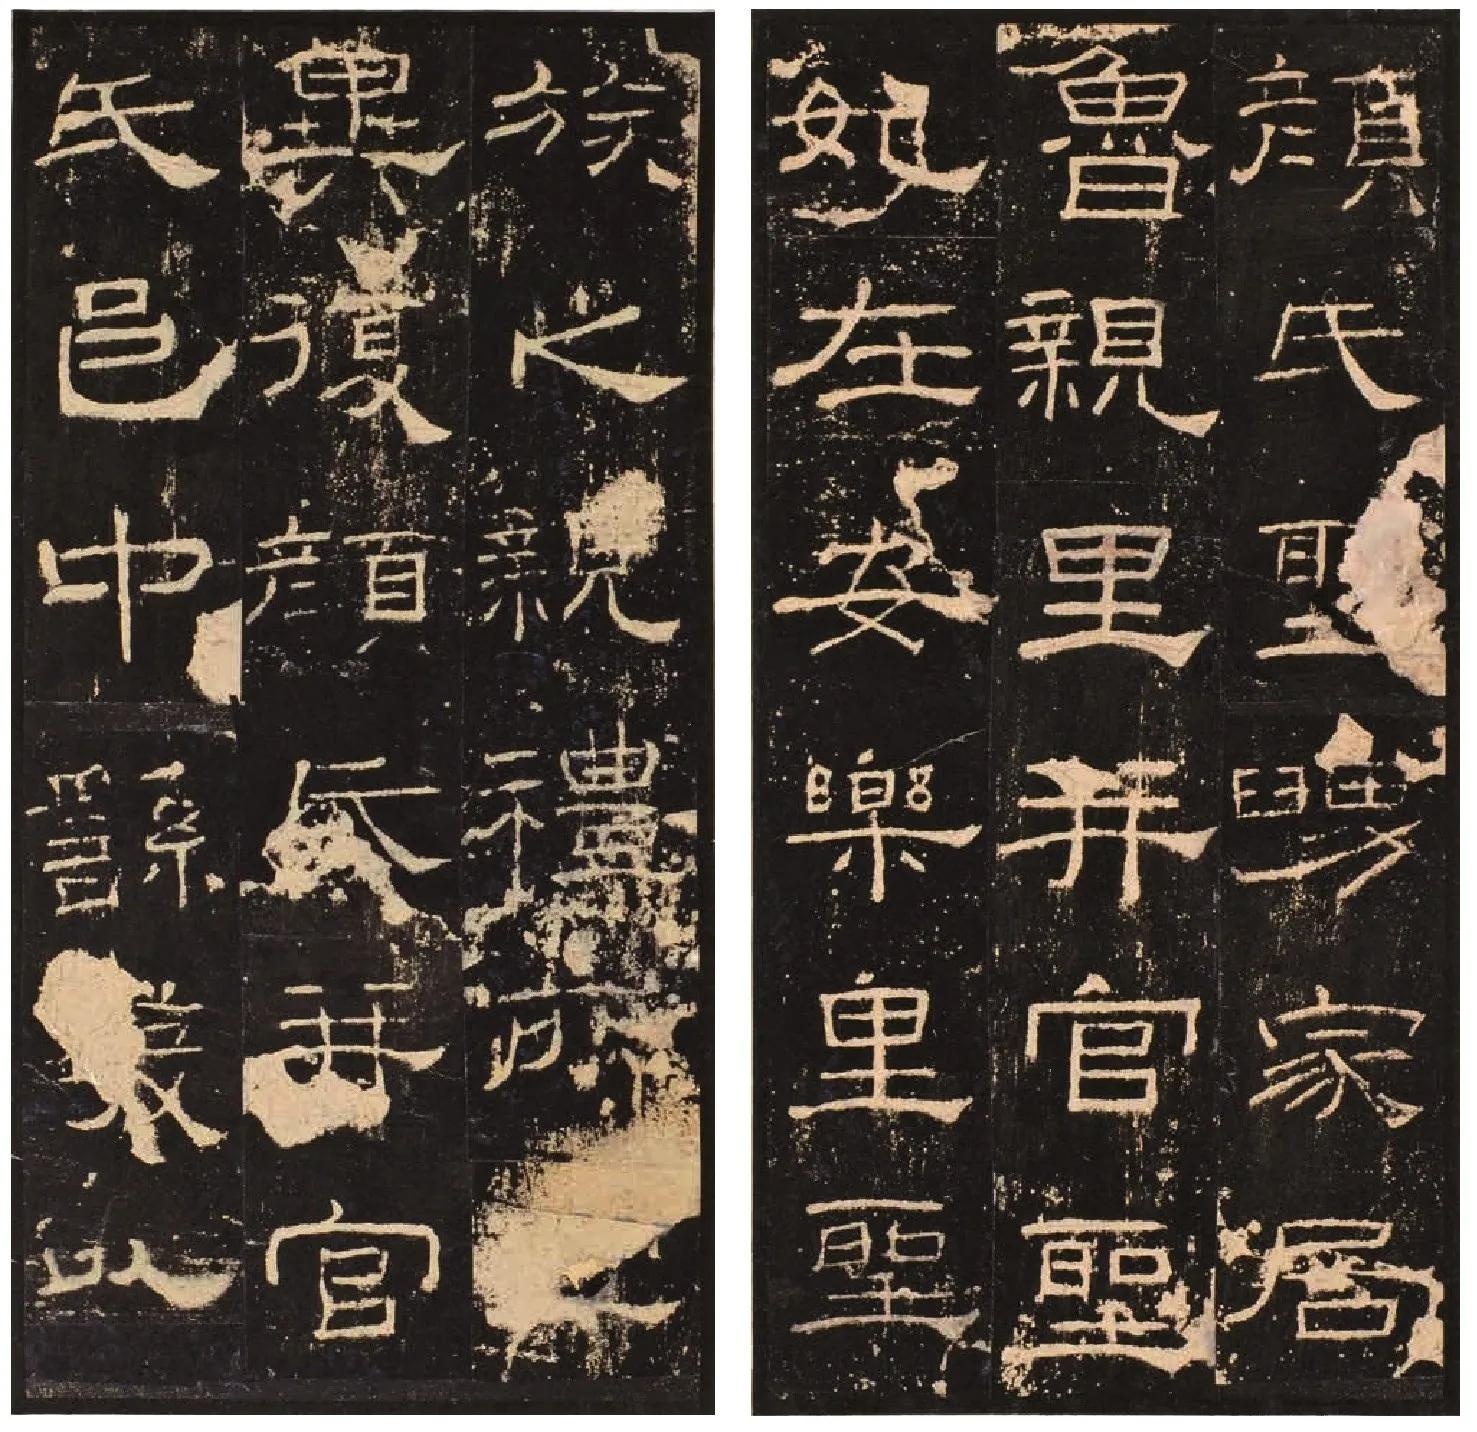 顏氏聖舅家居
魯親里并官聖
妃在安樂里聖
族之親禮所
異復顏氏并官
氏邑中繇發以